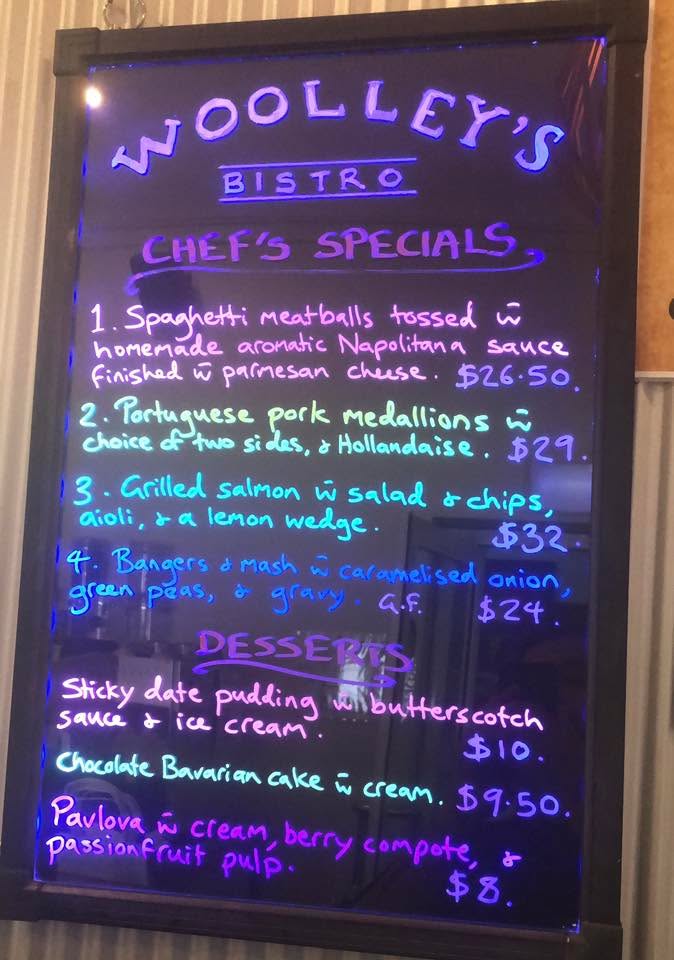 WOOLLEY'S
BISTRO
CHEF'S SPECIALS.
1. Spaghetti meatballs tossed w̄
homemade aromatic Napolitana sauce
finished w̄ parmesan cheese. $26.50.
2. Portuguese pork medallions w̄
choice of two sides, & Hollandaise. $29.
3. Grilled salmon w̄ salad & chips,
aioli, & a lemon wedge. $32.
4. Bangers & mash w̄ caramelised onion,
green peas, & gravy. G.F. $24.
DESSERTS
Sticky date pudding w̄ butterscotch
sauce & ice cream. $10.
Chocolate Bavarian cake w̄ cream. $9.50.
Pavlova w̄ cream, berry compote, &
passionfruit pulp. $8.